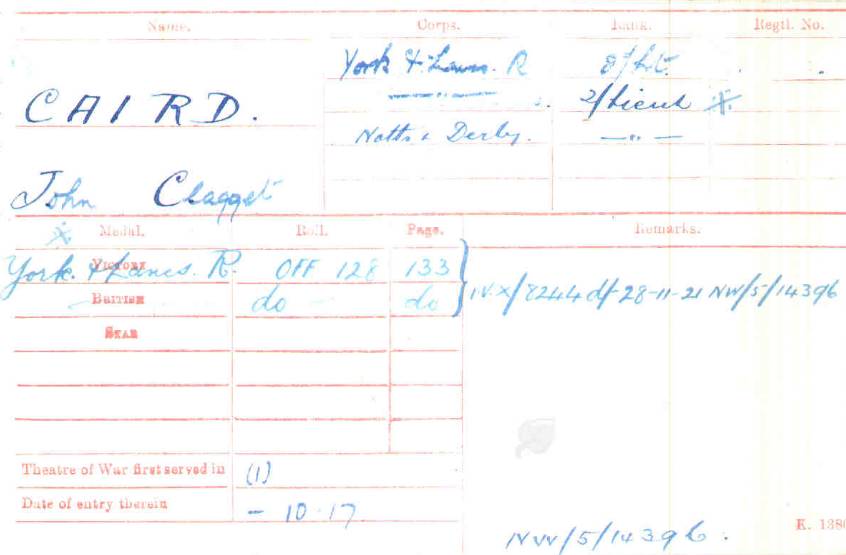 Name. Corps. Rank. Regtl. No.
York & Lancs. R
— " — 2/Lieut *
CAIRD. Notts & Derby. — " —
John Clagget
* Medal. Roll. Page. Remarks.
VICTORY York. & Lancs. R. OFF 128 133
BRITISH — do — do IV.X/8244 df 28-11-21 NW/5/14396
STAR
Theatre of War first served in (1)
Date of entry therein — 10.17.
NW/5/14396. K. 1380